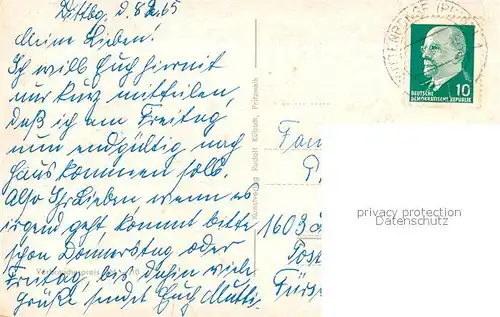 Dittbg, d. 8.2.65
Meine Lieben!
Ich will Euch hiermit
nur kurz mitteilen,
daß ich am Freitag
nun endgültig, nach
Haus kommen soll.
Also Ihr Lieben wenn es
irgend geht, kommt bitte
schon Donnerstag oder
Freitag, bis dahin viele
Grüße sendet Euch Mutti.
Kunstverlag Rudolf Kübsch, Pritzwalk
Verbraucherpreis
10
DEUTSCHE
DEMOKRATISCHE REPUBLIK
Fam
1603
Post
Fürs
privacy protection